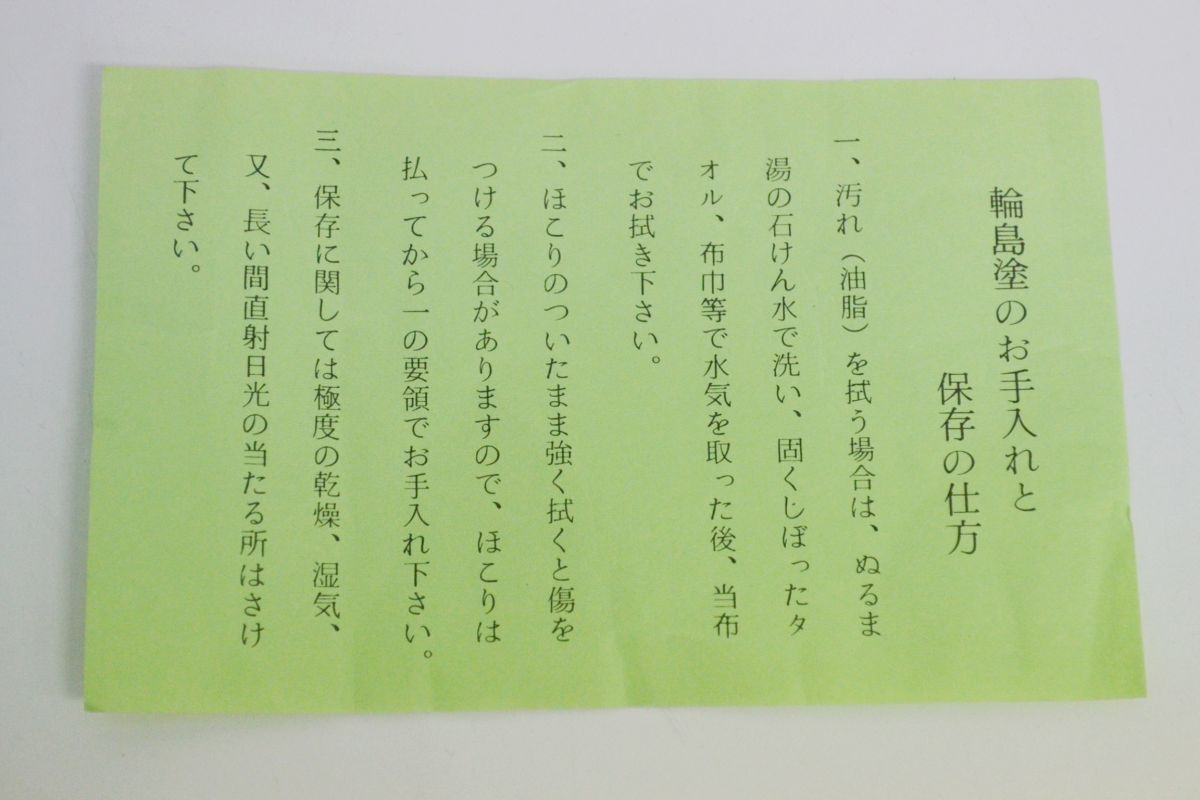 輪島塗のお手入れと
保存の仕方
一、汚れ（油脂）を拭う場合は、ぬるま
湯の石けん水で洗い、固くじぼったタ
オル、布巾等で水気を取った後、当布
でお拭き下さい。
二、ほこりのついたまま強く拭くと傷を
つける場合がありますので、ほこりは
払ってから一の要領でお手入れ下さい。
三、保存に関しては極度の乾燥、湿気、
又、長い間直射日光の当たる所はさけ
て下さい。